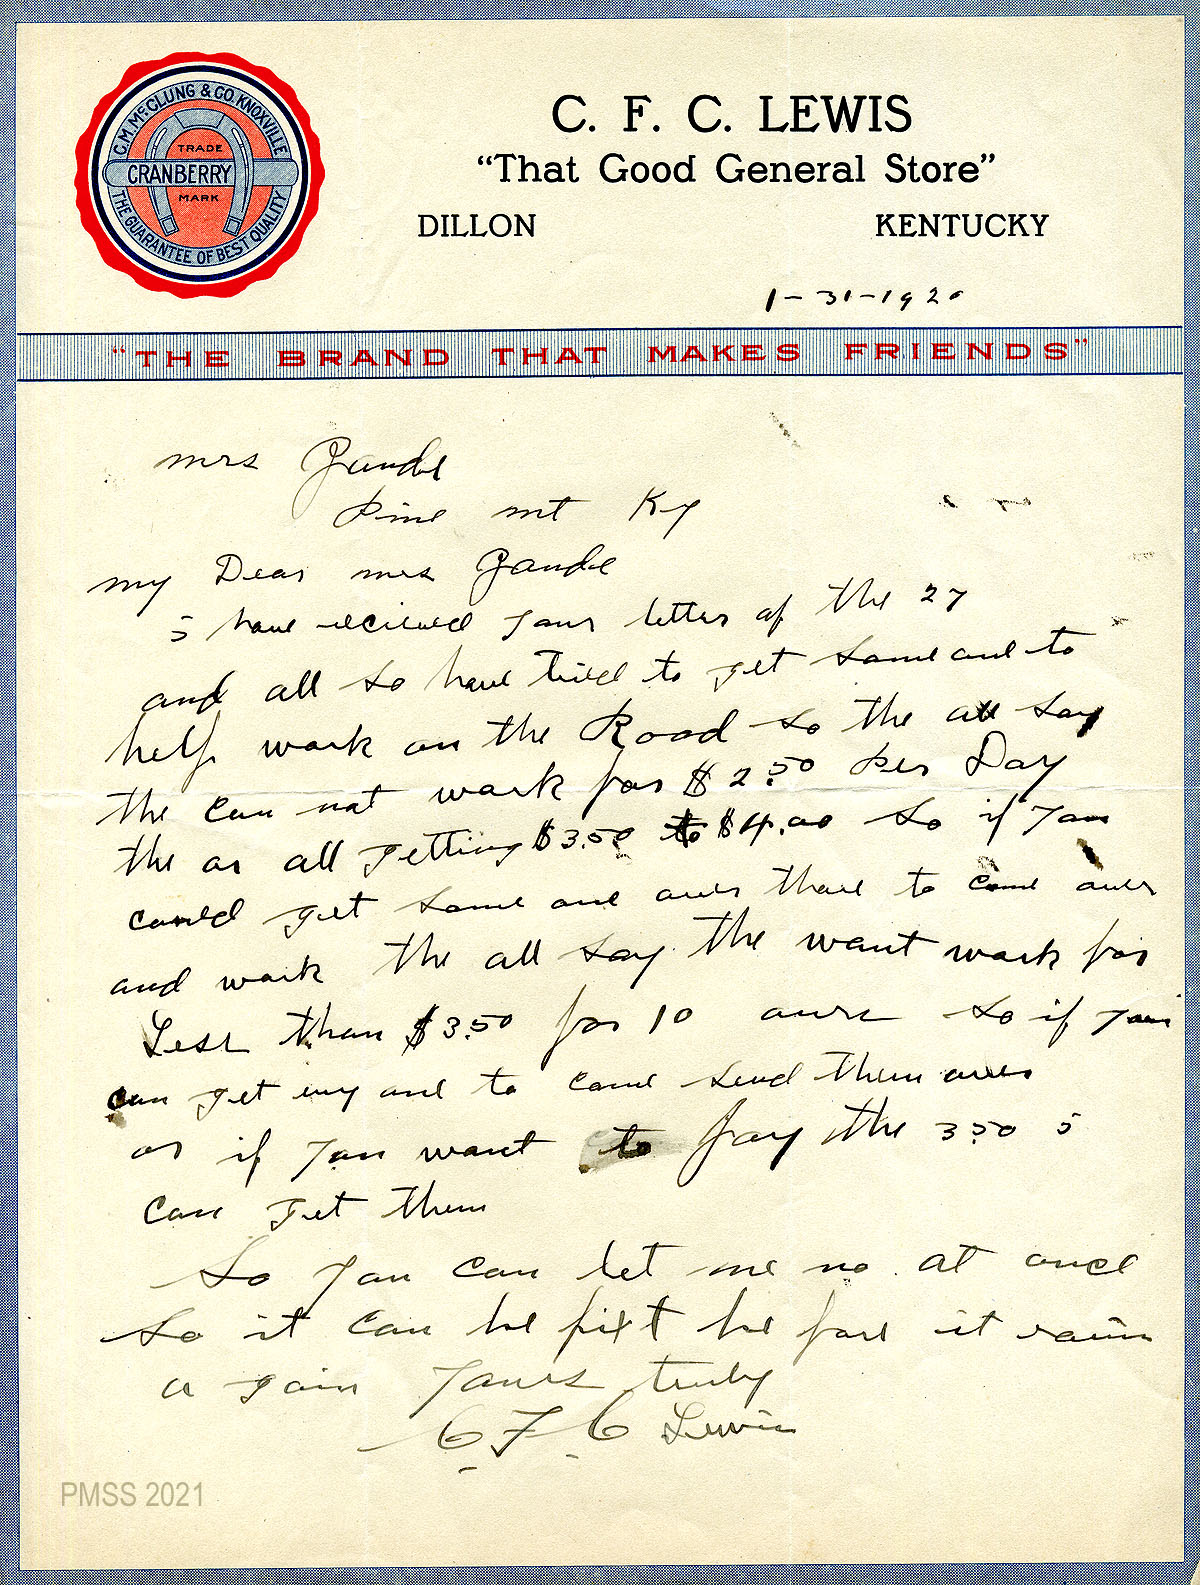 C. M. McCLUNG & CO. KNOXVILLE
TRADE
CRANBERRY
MARK
THE GUARANTEE OF BEST QUALITY
C. F. C. LEWIS
“That Good General Store”
DILLON KENTUCKY
1-31-1920
“THE BRAND THAT MAKES FRIENDS”
mrs Zande
Pine mt Ky
my Dear mrs Zande
I have recieved your letter of the 27
and all so have tried to get some one to
help work on the Road so the all say
the can not work for $2.50 Per Day
the ar all getting $3.50 to $4.00 so if you
could get some one over thare to come over
and work the all say the want work for
Less than $3.50 for 10 ours so if your
can get eny one to come send them over
or if you want to pay the 3.50 I
can get them
So you can let me no at once
so it can be fixt be fore it rain
a gain yours truly
C F C Lewis
PMSS 2021